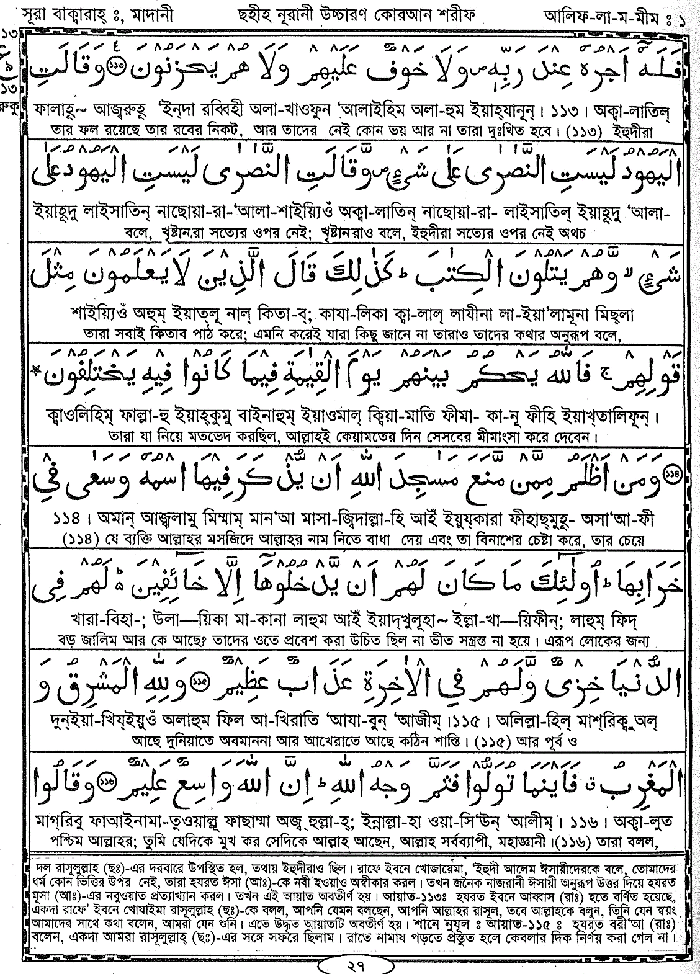 সূরা বাক্বারাহ্ ঃ, মাদানী ছহীহ নূরানী উচ্চারণ কোরআন শরীফ আলিফ-লা-ম-মীম ঃ ১
فَلَهٗۤ اَجْرُهٗ عِنْدَ رَبِّهٖ ۪ وَلَا خَوْفٌ عَلَيْهِمْ وَلَا هُمْ يَحْزَنُوْنَ ﴿۱۱۲﴾ وَقَالَتِ
ফালাহূ~ আজ্বরুহূ 'ইন্‌দা রব্বিহী অলা-খাওফুন 'আলাইহিম অলা-হুম ইয়াহ্‌যানূন্‌। ১১৩। অক্বা-লাতিল্‌
তার ফল রয়েছে তার রবের নিকট, আর তাদের নেই কোন ভয় আর না তারা দুঃখিত হবে। (১১৩) ইহুদীরা
الْيَهُوْدُ لَيْسَتِ النَّصٰرٰى عَلٰى شَىْءٍ ۪ وَّقَالَتِ النَّصٰرٰى لَيْسَتِ الْيَهُوْدُ عَلٰى
ইয়াহূদু লাইসাতিন্‌ নাছোয়া-রা-'আলা-শাইয়্যিওঁ অক্বা-লাতিন্‌ নাছোয়া-রা- লাইসাতিল্‌ ইয়াহূদু 'আলা-
বলে, খৃষ্টানরা সত্যের ওপর নেই; খৃষ্টানরাও বলে, ইহুদীরা সত্যের ওপর নেই অথচ
شَىْءٍ ۙ وَّهُمْ يَتْلُوْنَ الْكِتٰبَ ؕ كَذٰلِكَ قَالَ الَّذِيْنَ لَا يَعْلَمُوْنَ مِثْلَ
শাইয়্যিওঁ অহুম্‌ ইয়াত্‌লূ নাল্‌ কিতা-ব্‌; কাযা-লিকা ক্বা-লাল্‌ লাযীনা লা-ইয়া'লামূনা মিছ্‌লা
তারা সবাই কিতাব পাঠ করে; এমনি করেই যারা কিছু জানে না তারাও তাদের কথার অনুরূপ বলে,
قَوْلِهِمْ ۚ فَاللّٰهُ يَحْكُمُ بَيْنَهُمْ يَوْمَ الْقِيٰمَةِ فِيْمَا كَانُوْا فِيْهِ يَخْتَلِفُوْنَ *
ক্বাওলিহিম্‌ ফাল্লা-হু ইয়াহ্‌কুমু বাইনাহুম্‌ ইয়াওমাল্‌ ক্বিয়া-মাতি ফীমা- কা-নূ ফীহি ইয়াখ্‌তালিফূন্‌।
তারা যা নিয়ে মতভেদ করছিল, আল্লাহই কেয়ামতের দিন সেসবের মীমাংসা করে দেবেন।
﴿۱۱۴﴾ وَمَنْ اَظْلَمُ مِمَّنْ مَّنَعَ مَسٰجِدَ اللّٰهِ اَنْ يُّذْكَرَ فِيْهَا اسْمُهٗ وَسَعٰى فِىْ
১১৪। অমান্‌ আজ্‌লামু মিম্মাম্‌ মান'আ মাসা-জ্বিদাল্লা-হি আইঁ ইয়ুয্‌কারা ফীহাছ্‌মুহূ- অসা'আ-ফী
(১১৪) যে ব্যক্তি আল্লাহর মসজিদে আল্লাহর নাম নিতে বাধা দেয় এবং তা বিনাশের চেষ্টা করে, তার চেয়ে
خَرَابِهَا ؕ اُولٰٓئِكَ مَا كَانَ لَهُمْ اَنْ يَّدْخُلُوْهَاۤ اِلَّا خَآئِفِيْنَ ؕ لَهُمْ فِى
খারা-বিহা-; উলা—য়িকা মা-কানা লাহুম আইঁ ইয়াদ্‌খুলূহা~ ইল্লা-খা—য়িফীন্‌; লাহুম্‌ ফিদ্‌
বড় জালিম আর কে আছে? তাদের ওতে প্রবেশ করা উচিত ছিল না ভীত সন্ত্রস্ত না হয়ে। এরূপ লোকের জন্য
الدُّنْيَا خِزْىٌ وَّلَهُمْ فِى الْاٰخِرَةِ عَذَابٌ عَظِيْمٌ ﴿۱۱۵﴾ وَلِلّٰهِ الْمَشْرِقُ وَ
দুন্‌ইয়া-খিয্‌ইয়ুওঁ অলাহুম ফিল আ-খিরাতি 'আযা-বুন্‌ 'আজীম্‌।১১৫। অলিল্লা-হিল্‌ মাশ্‌রিক্বু অল্‌
আছে দুনিয়াতে অবমাননা আর আখেরাতে আছে কঠিন শাস্তি। (১১৫) আর পূর্ব ও
الْمَغْرِبُ ۗ فَاَيْنَمَا تُوَلُّوْا فَثَمَّ وَجْهُ اللّٰهِ ؕ اِنَّ اللّٰهَ وَاسِعٌ عَلِيْمٌ ﴿۱۱۶﴾ وَقَالُوا
মাগ্‌রিবু ফাআইনামা-তুওয়াল্লূ ফাছাম্মা অজ্‌হুল্লা-হ্‌; ইন্নাল্লা-হা ওয়া-সি'উন্‌ 'আলীম্‌। ১১৬। অক্বা-লুত
পশ্চিম আল্লাহর; তুমি যেদিকে মুখ কর সেদিকে আল্লাহ আছেন, আল্লাহ সর্বব্যাপী, মহাজ্ঞানী।(১১৬) তারা বলল,
দল রাসূলুল্লাহ (ছঃ)-এর দরবারে উপস্থিত হল, তথায় ইহুদীরাও ছিল। রাফে ইবনে খোজায়েমা, 'ইহুদী আলেম ঈসারীদেরকে বলে, তোমাদের
ধর্ম কোন ভিত্তির উপর নেই, তারা হযরত ঈসা (আঃ)-কে নবী হওয়াও অস্বীকার করল। তখন জনৈক নাজরানী ঈসায়ী অনুরূপ উত্তর দিয়ে হযরত
মূসা (আঃ)-এর নবুওয়াত প্রত্যাখ্যান করল। তখন এই আয়াত অবতীর্ণ হয়। আয়াত-১১৩ঃ হযরত ইবনে আব্বাস (রাঃ) হতে বর্ণিত হয়েছে,
একদা রাফে' ইবনে খোযাইমা রাসূলুল্লাহ (ছঃ)-কে বলল, আপনি যেমন বলছেন, আপনি আল্লাহর রাসূল, তবে আল্লাহকে বলুন, তিনি যেন স্বয়ং
আমাদের সাথে কথা বলেন, আমরা যেন শুনি। এতে উদ্ধৃত আয়াতটি অবতীর্ণ হয়। শানে নুযূল ঃ আয়াত-১১৫ ঃ হযরত বারী'আ (রাঃ)
বলেন, একদা আমরা রাসূলুল্লাহ (ছঃ)-এর সঙ্গে সফরে ছিলাম। রাতে নামায পড়তে প্রস্তুত হলে কেবলার দিক নির্ণয় করা গেল না।
২৭